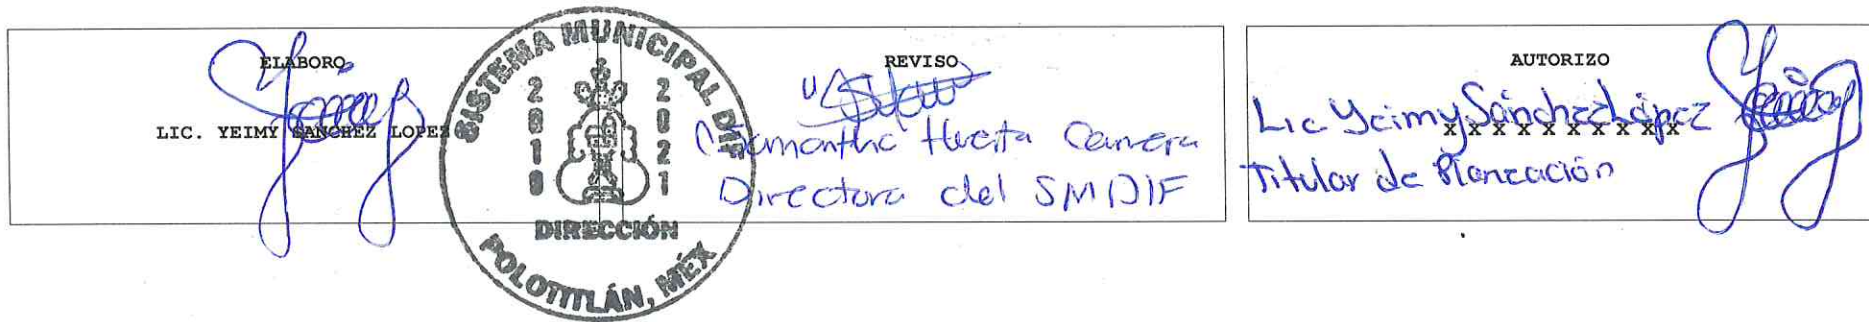 ELABORO
LIC. YEIMY SANCHEZ LOPEZ
SISTEMA MUNICIPAL DIF
2019
2021
DIRECCIÓN
POLOTITLÁN, MÉX
REVISO
Samantha Huerta
Directora del SMDIF
AUTORIZO
Lic Yeimy Sánchez López
X X X X X X X X X X
Titular de Planeación